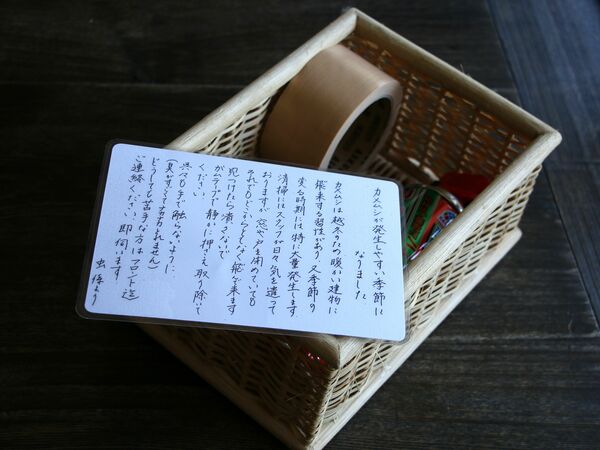 カメムシが発生しやすい季節に
なりました
カメムシは越冬のため暖かい建物に
飛来する習性があり、又季節の
変る時期には特に大量発生します
清掃にはスタッフが日々気を遣って
おりますが窓や戸を閉めていても
それでもどこからともなく飛で来ます
見つけたら潰さないで
ガムテープで静かに押え取り除いて
ください
呉々も手で触らないように、
(臭がすごくて若かれません)
どうしても苦手な方はフロント迄
ご連絡ください、即伺います!
虫係より